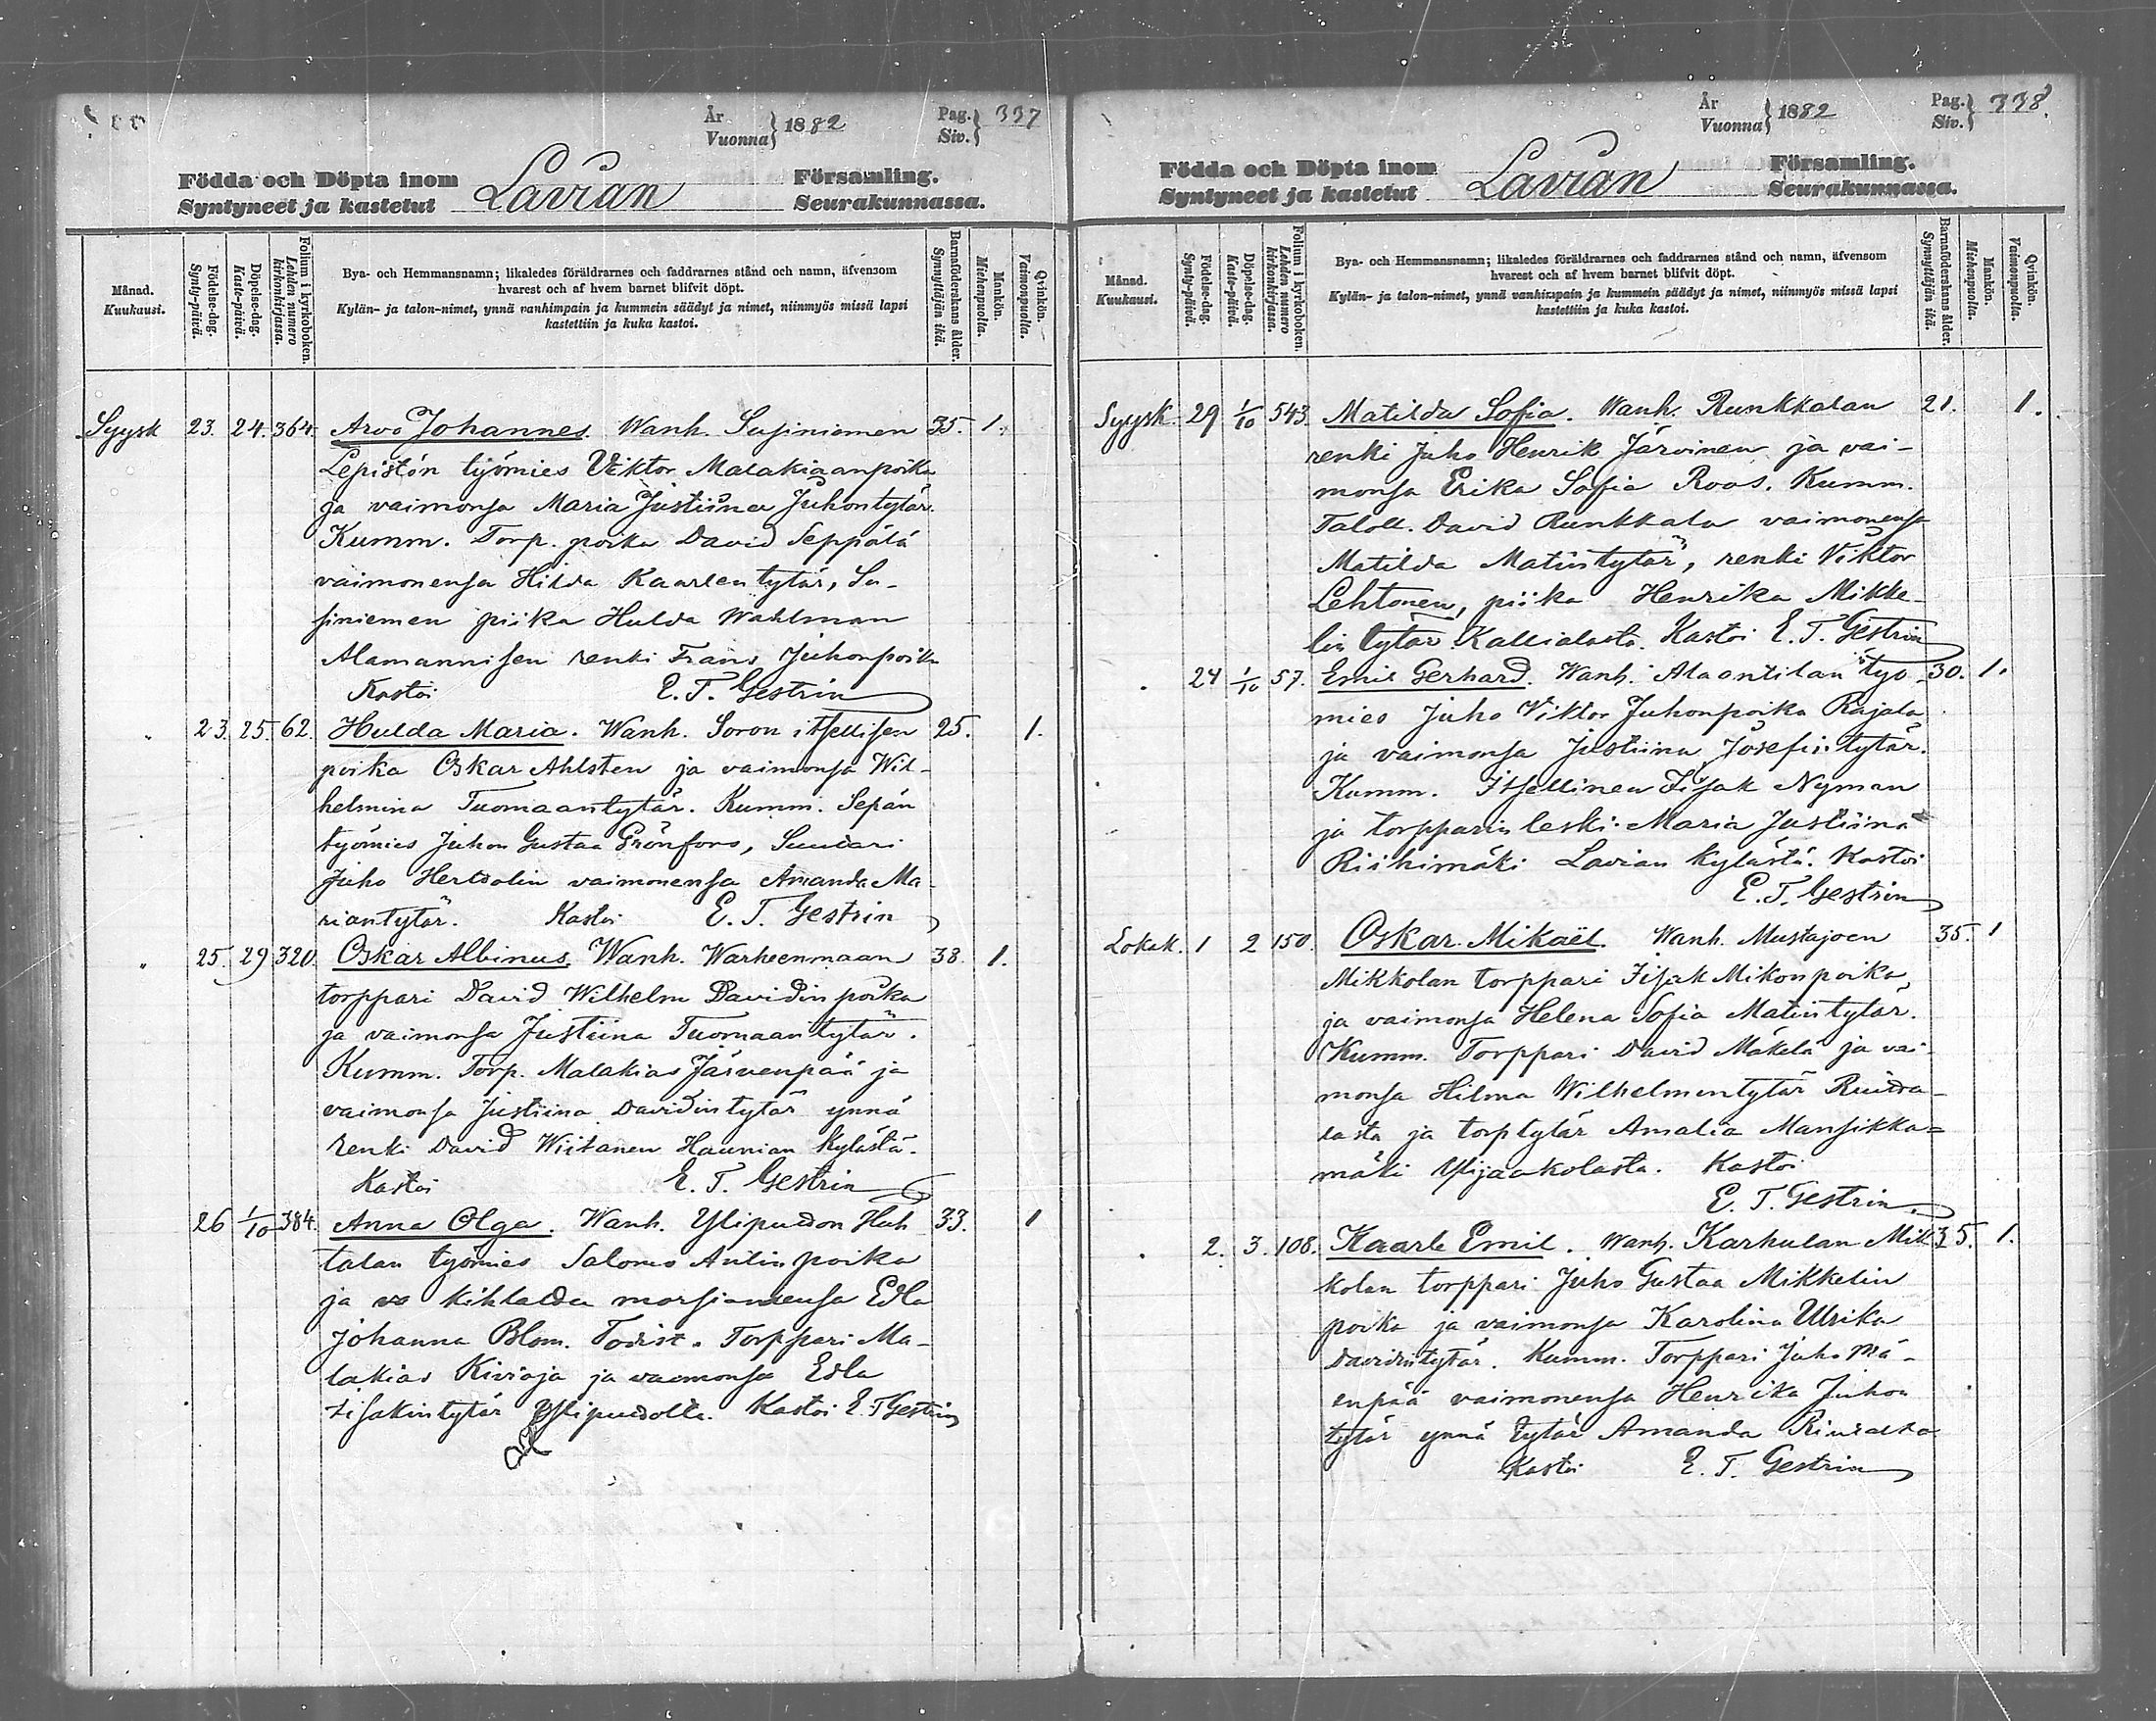 År
Vuonna } 1882
Pag.
Siv. } 337
Födda och Döpta inom
Syntyneet ja kastetut Lavian Församling.
Seurakunnassa.
Månad.
Kuukausi.
Födelse-dag.
Synty-päivä.
Döpelse-dag.
Kaste-päivä.
Folium i kyrkoboken.
Lehden numero kirkonkirjassa.
Bya- och Hemmansnamn; likaledes föräldrarnes och faddrarnes stånd och namn, äfvensom
hvarest och af hvem barnet blifvit döpt.
Kylän- ja talon-nimet, ynnä vanhimpain ja kummein säädyt ja nimet, niinmyös missä lapsi
kastettiin ja kuka kastoi.
Barnaföderskans ålder.
Synnyttäjän ikä.
Mankön.
Miehenpuolta.
Qvinkön.
Vaimonpuolta.
Syysk 23. 24. 364. Arvo Johannes. Wanh. Susiniemen 35. 1.
Lepistön työmies Viktor Malakiaanpoika
ja vaimonsa Maria Justiina Juhontytär.
Kumm. Torp. poika David Seppälä
vaimonensa Hilda Kaarlentytär, Su-
siniemen piika Hulda Wahlman
Alamannisen renki Frans Juhonpoika
Kastoi E. T. Gestrin
" 23. 25. 62. Hulda Maria. Wanh. Soron itsellisen 25. 1.
poika Oskar Ahlsten ja vaimonsa Wil-
helmina Tuomaantytär. Kumm. Sepän
työmies Juhon Gustaa Grönfors, Suutari
Juho Hertsolin vaimonensa Amanda Ma-
riantytär. Kastoi E. T. Gestrin
" 25. 29 320. Oskar Albinus. Wanh. Warheenmaan 38. 1.
torppari David Wilhelm Davidin poika
ja vaimonsa Justiina Tuomaantytär.
Kumm. Torp. Malakias Järvenpää ja
vaimonsa Justiina Davidintytär ynnä
renki David Wiitanen Haunian kylästä.
Kastoi E. T. Gestrin
26 1/10 384. Anna Olga. Wanh. Ylipuodon Huh 33. 1
talan työmies Salomo Antinpoika
ja kihlaldu morsiamensa Edla
Johanna Blom. Todist. Torppari Ma-
lakias Kivioja ja vaimonsa Edla
Iisakintytär Ylipuodolla. Kastoi E. T Gestrin
År
Vuonna } 1882
Pag.
Siv. } 338.
Födda och Döpta inom
Syntyneet ja kastetut Lavian Församling.
Seurakunnassa.
Månad.
Kuukausi.
Födelse-dag.
Synty-päivä.
Döpelse-dag.
Kaste-päivä.
Folium i kyrkoboken.
Lehden numero kirkonkirjassa.
Bya- och Hemmansnamn; likaledes föräldrarnes och faddrarnes stånd och namn, äfvensom
hvarest och af hvem barnet blifvit döpt.
Kylän- ja talon-nimet, ynnä vanhimpain ja kummein säädyt ja nimet, niinmyös missä lapsi
kastettiin ja kuka kastoi.
Barnaföderskans ålder.
Synnyttäjän ikä.
Mankön.
Miehenpuolta.
Qvinkön.
Vaimonpuolta.
Syysk. 29 1/10 543. Matilda Sofia. Wanh. Runkkalan 21. 1.
renki Juho Henrik Järvinen ja vai-
monsa Erika Sofia Roos. Kumm.
Taloll. David Runkkala vaimonensa
Matilda Matintytär, renki Viktor
Lehtonen, piika Henrika Mikke-
lin tytär Kallialasta. Kastoi E. T. Gestrin
" 24 1/10 57. Emil Gerhard. Wanh. Alaantilan työ- 30. 1.
mies Juho Viktor Juhonpoika Rajala
ja vaimonsa Justiina Josefintytär.
Kumm. Itsellinen Iisak Nyman
ja torpparin leski Maria Justiina
Riihimäki Lavian kylästä. Kastoi
E. T. Gestrin
Lokak. 1 2 150. Oskar Mikaël. Wanh. Mustajoen 35. 1
Mikkolan torppari Iisak Mikonpoika
ja vaimonsa Helena Sofia Matintytär.
Kumm. Torppari David Mäkelä ja vai-
monsa Hilma Wilhelmintytär Riiida-
lasta ja torptytär Amalia Mansikka=
mäki Ylijaakolasta. Kastoi
E. T. Gestrin
" 2. 3. 108. Kaarle Emil. Wanh. Karhulan Mik 35. 1.
kolan torppari Juho Gustaa Mikkelin
poika ja vaimonsa Karolina Ulrika
Davidintytär. Kumm. Torppari Juho Mä-
enpää vaimonensa Henrika Juhon
tytär ynnä tytär Amanda
Kastoi E. T. Gestrin